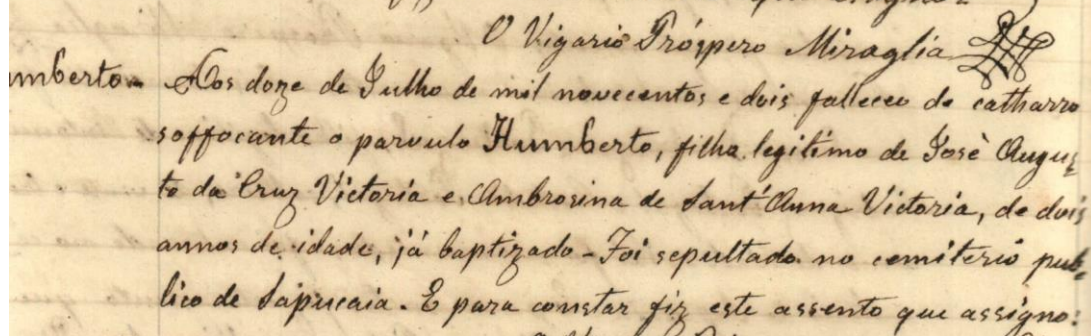 O Vigario Próspero Miraglia
umberto - Aos doze de Julho de mil novecentos e dois falleceu de catharro
soffocante o parvulo Humberto, filho legitimo de José Augus
to da Cruz Victoria e Ambrosina de Sant'Anna Victoria, de dois
annos de idade, já baptizado - Foi sepultado no cemiterio pub
lico de Sapucaia. E para constar fiz este assento que assigno.